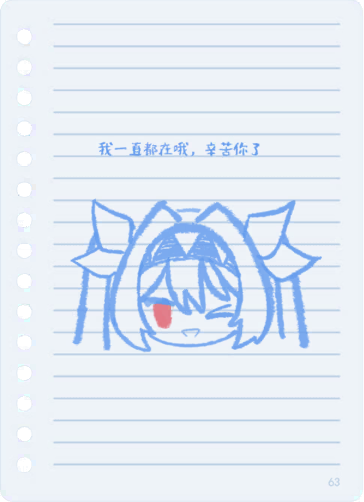 我一直都在哦，辛苦你了
63